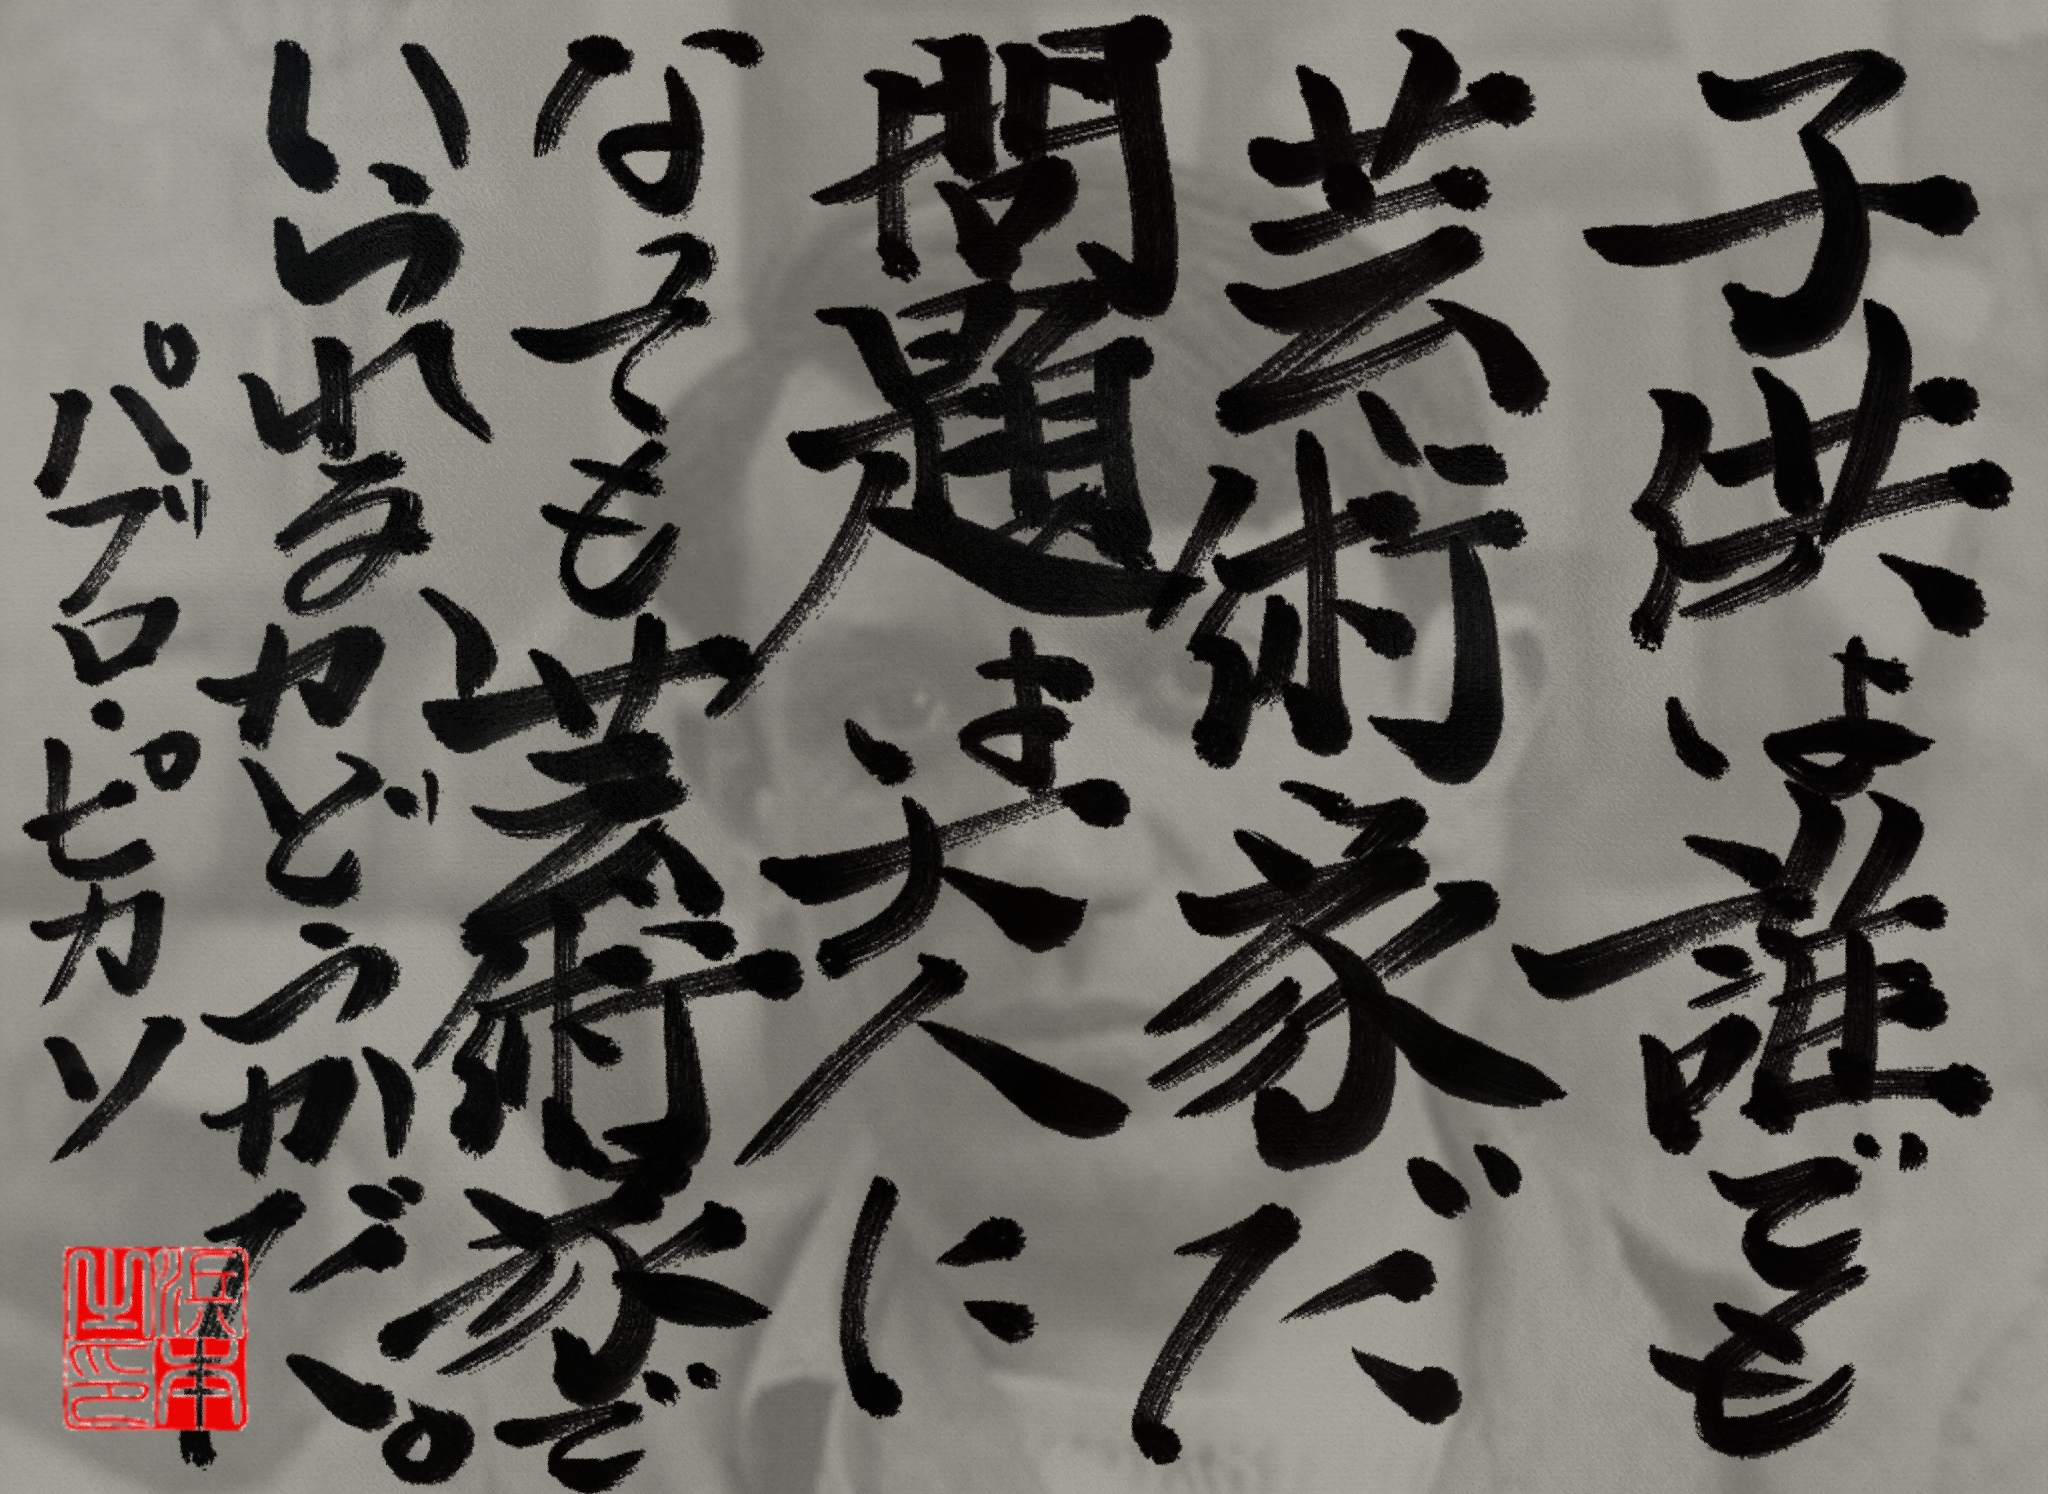 子供は誰でも
芸術家だ
問題は大人に
なっても芸術家で
いられるかどうかだ。
パブロ・ピカソ